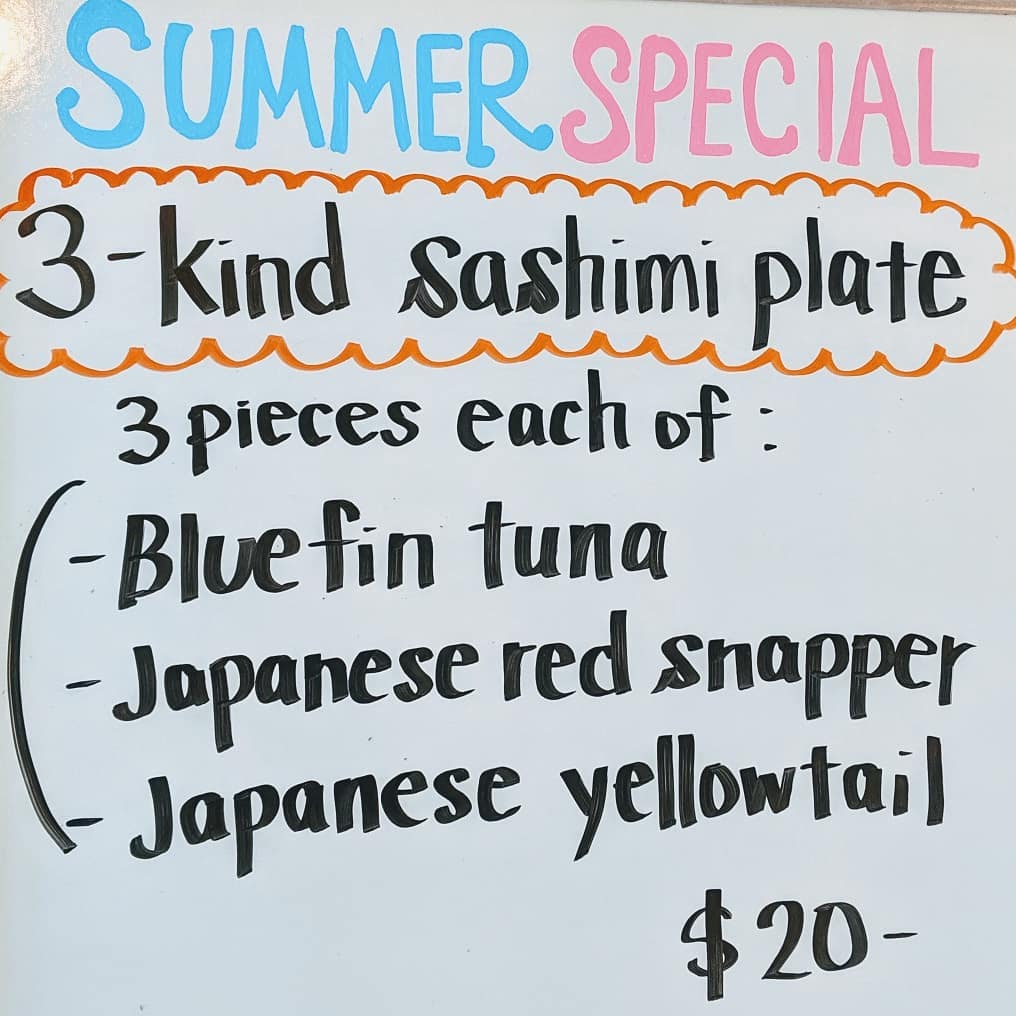 SUMMER SPECIAL
3-kind sashimi plate
3 pieces each of :
- Bluefin tuna
- Japanese red snapper
- Japanese yellowtail
$20-